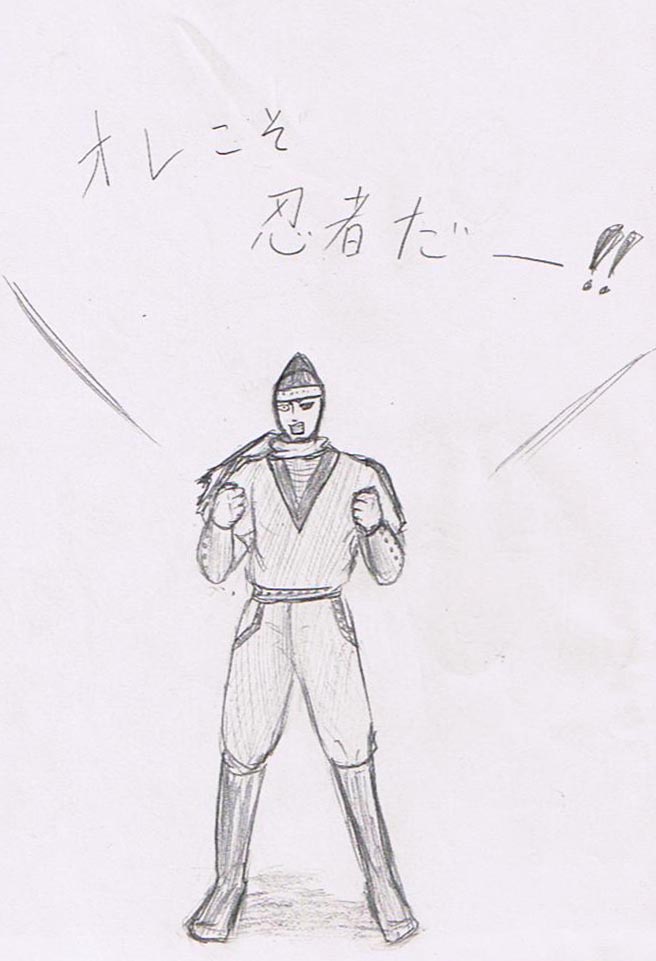 オレこそ
忍者だー!!